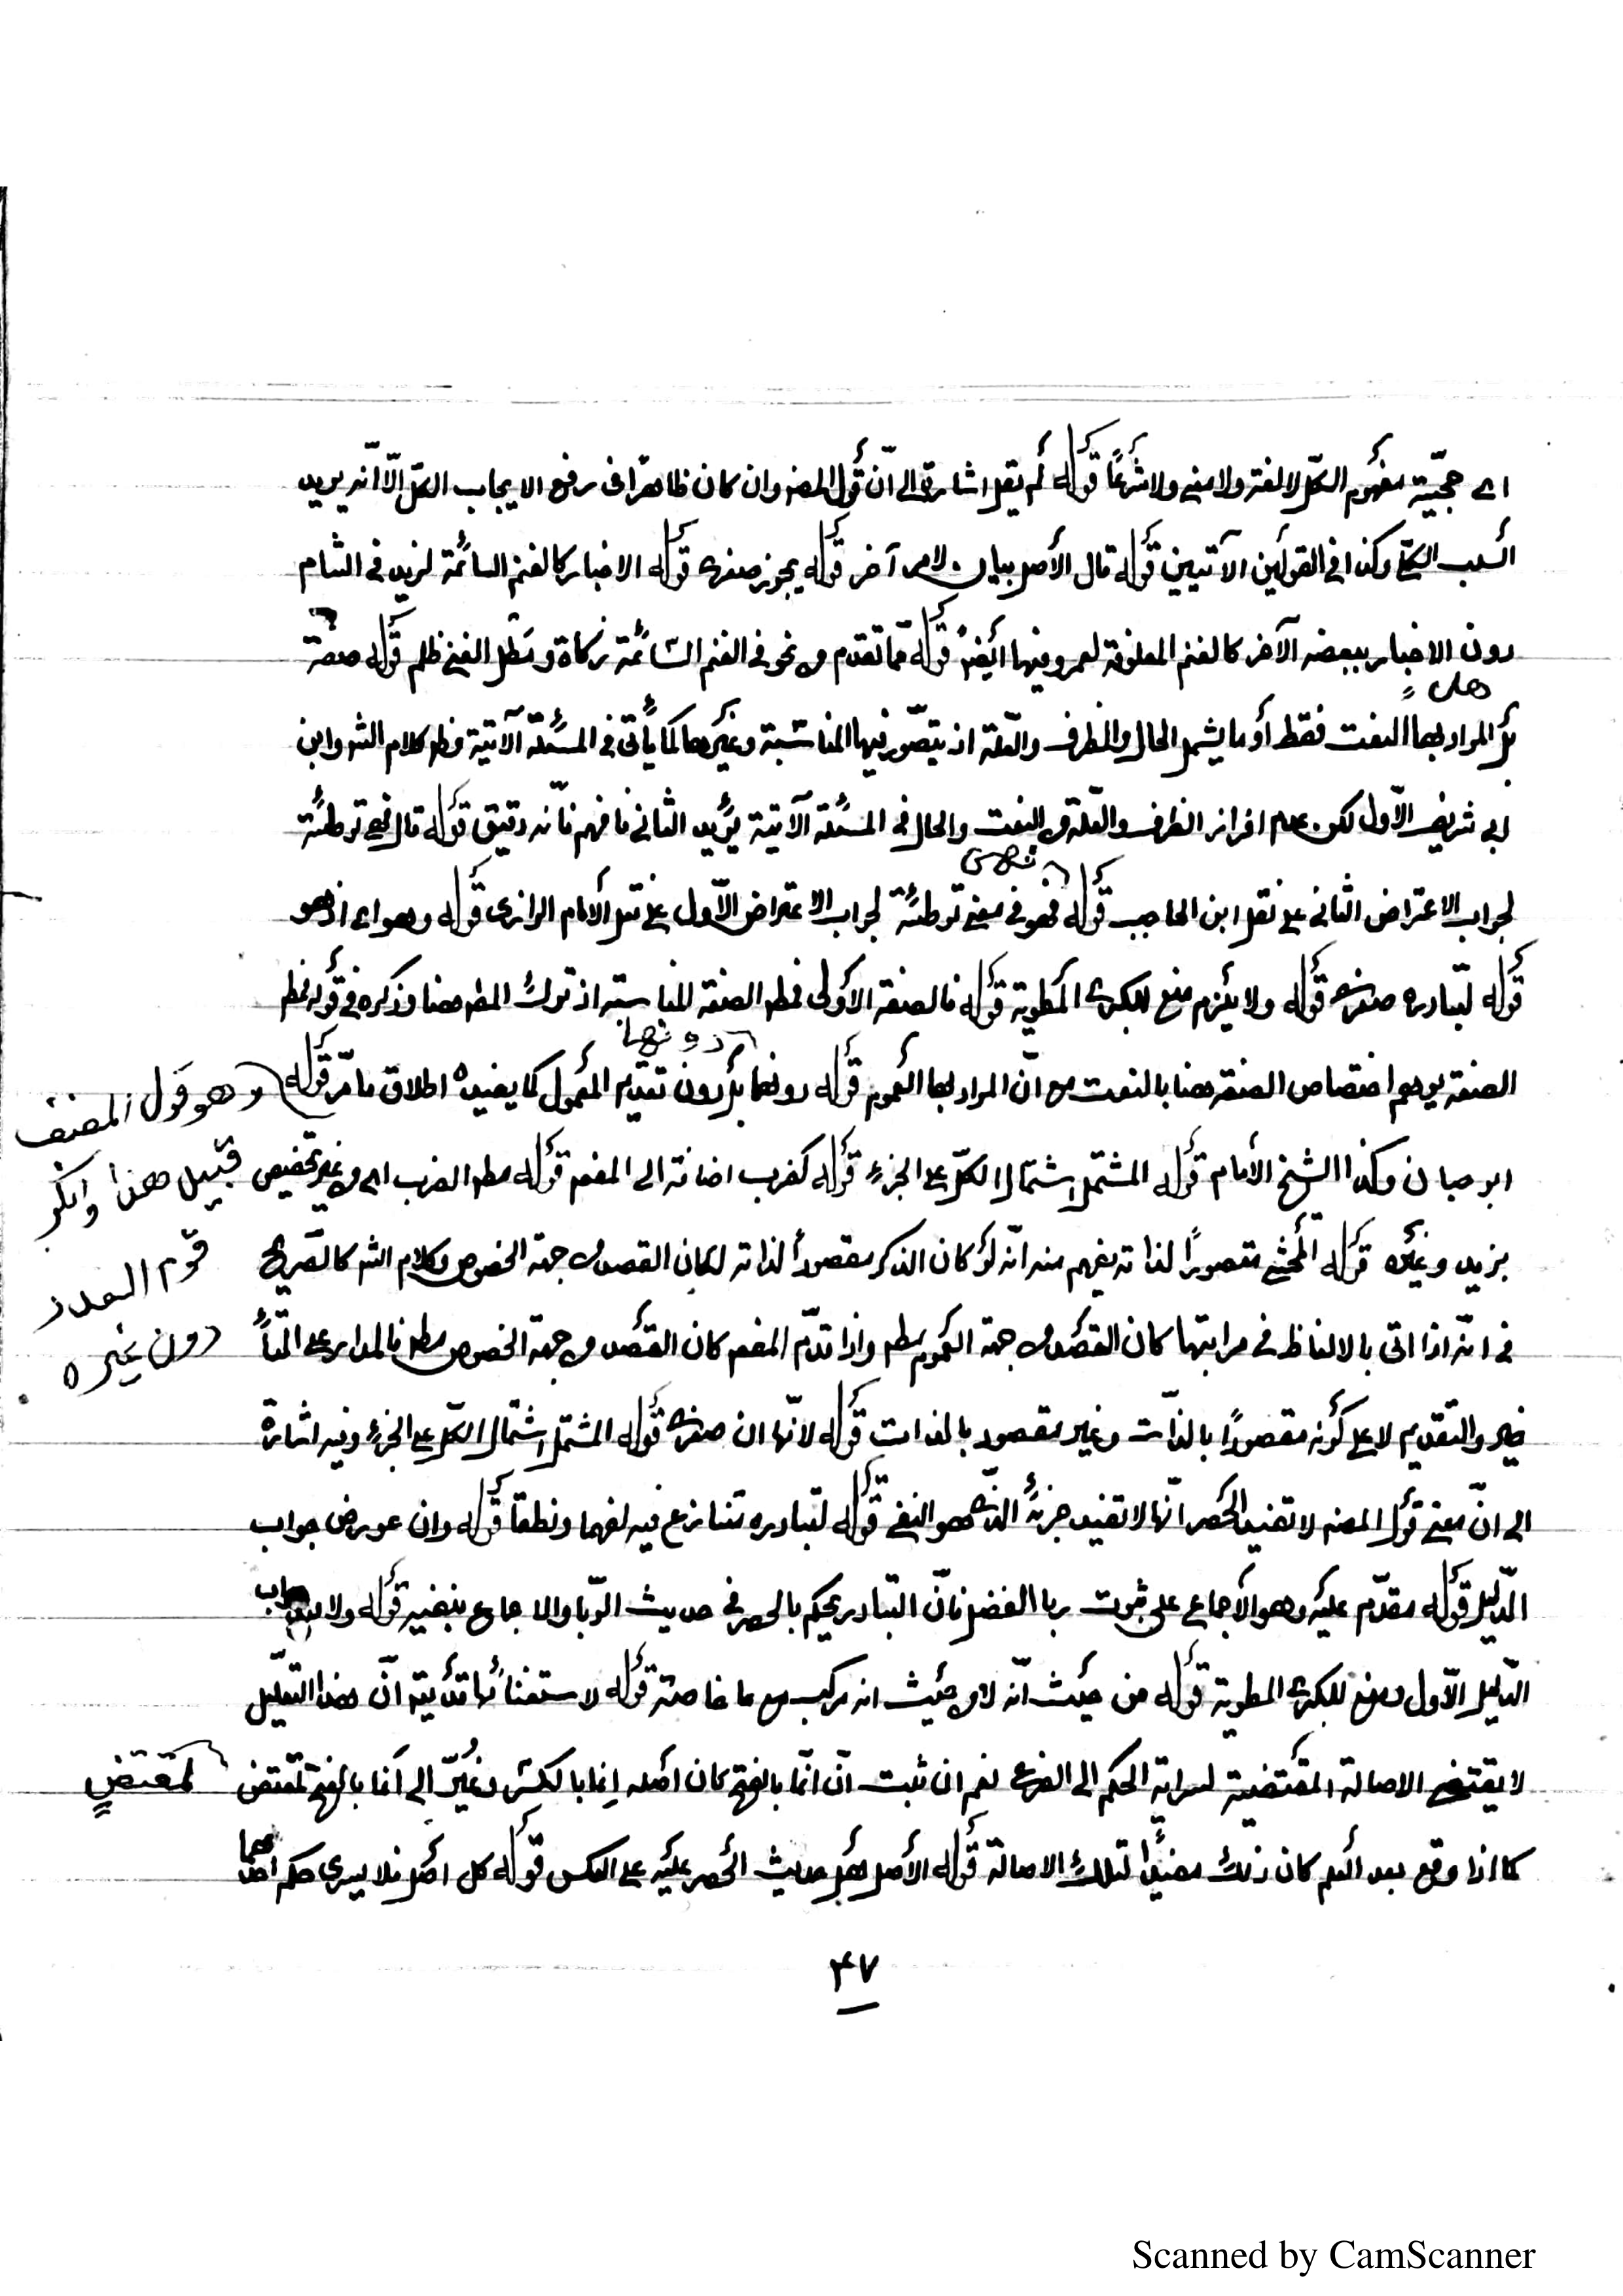 اى حجّية مفهوم الكلّ لا لغة ولا معنى ولا شرعًا قوله لم يقل اشارة الى أنّ قول المصـ وان كان ظاهرًا فى رفع الايجاب الكلّى الّا انّه يريد
السلب الكلّى وكذا فى القولين الآتيين قوله قال الأصل بيان لامر آخر قوله يجوز صغرى قوله الاخبار كالغنم السائمة لزيد فى الشام
دون الاخبار ببعضه الآخر كالغنم المعلوفة لعمرو فيها ايضًا قوله ممّا تقدم من نحو فى الغنم السّائمة زكاة ومطل الغنى ظلم قوله صفة
هل
المراد بها النعت فقط أو ما يشمل الحال والظرف والعلّة اذ يتصوّر فيها المناسبة وغيرها كما يأتى فى المسئلة الآتية وظـ كلام الشـ وابن
ابى شريف الأول لكن عدم افراز الظرف والعلّة من النعت والحال فى المسئلة الآتية يؤيد الثانى فافهم فانّه دقيق قوله قال فهى توطئة
فهى
لجواب الاعتراض الثانى على نقل ابن الحاجب قوله فهو فى معنى توطئة لجواب الاعتراض الأول على نقل الامام الرازى قوله وهو اى اذ هو
قوله لتبادره صغرى قوله ولا يلزم منع للكبرى المطوية قوله فالصفة الأولى فمطـ الصفة المناسبة اذ ترك المطـ هنا وذكره فى قوله فمطـ
دونها
الصفة يوهم اختصاص الصفة هنا بالنعت مع انّ المراد بها العموم قوله دونها بل دون تقديم المعمول كما يفيده اطلاق ما مرّ قوله
وهو قول المصنف
قبيل هذا وانكر
قوم العدد
دون غيره
ابو حيان وكذا الشيخ الأمام قوله المشتمل اشتمال الكلّ على الجزء قوله كضرب اضافته الى المفعـ قوله مطـ الضرب اى من غير تخصيص
بزيد وغيره قوله المحشى مقصورًا لذاته يفهم منه انّه لو كان الذكر مقصودًا لذاته لكان القصد من جهة الخصوص وكلام الشـ كالصريح
فى انّه اذا اتى بالالفاظ فى مراتبها كان القصد من جهة العموم مطـ واذا تقدّم المفعـ كان القصد من جهة الخصوص مطـ فالمدار على التأ
خير والتقديم لا على كونه مقصودًا بالذّات وغير مقصود بالذات قوله لانّها ان صغرى قوله المشتمل اشتمال الكلّ على الجزء وفيه اشارة
الى انّ معنى قول المصـ لا تفيد الحصر انّها لا تفيد جزئه الذى هو النفى قوله لتبادره تنازع فيه لفهما ونطقا قوله وان عورض جواب
الدّليل قوله مقدّم عليه وهو الأجماع على ثبوت ربا الفضل فانّ التبادر يحكم بالحصر فى حديث الرّبا والاجماع ينفيه قوله ولا جواب
الدّليل الأول ومنع للكبرى المطوية قوله من حيث انّه لا من حيث انه مركب مع ما خاصة قوله لاستغنائها قد يقـ انّ هذا التعليل
لا يقتضى الاصالة المقتضية لسراية الحكم الى الفرع نعم ان ثبت انّ انّما بالفتح كان اصله إنما بالكسر وغيّر الى أنما بالفتح لمقتض
لمقتضٍ
كما اذا وقع بعد العلم كان ذلك مفيدًا لتلك الاصالة قوله الأصل لعل حديث الحصر عليه على العكس قوله كل اصل فلا يسرى حكم احدهما
٤٧
Scanned by CamScanner